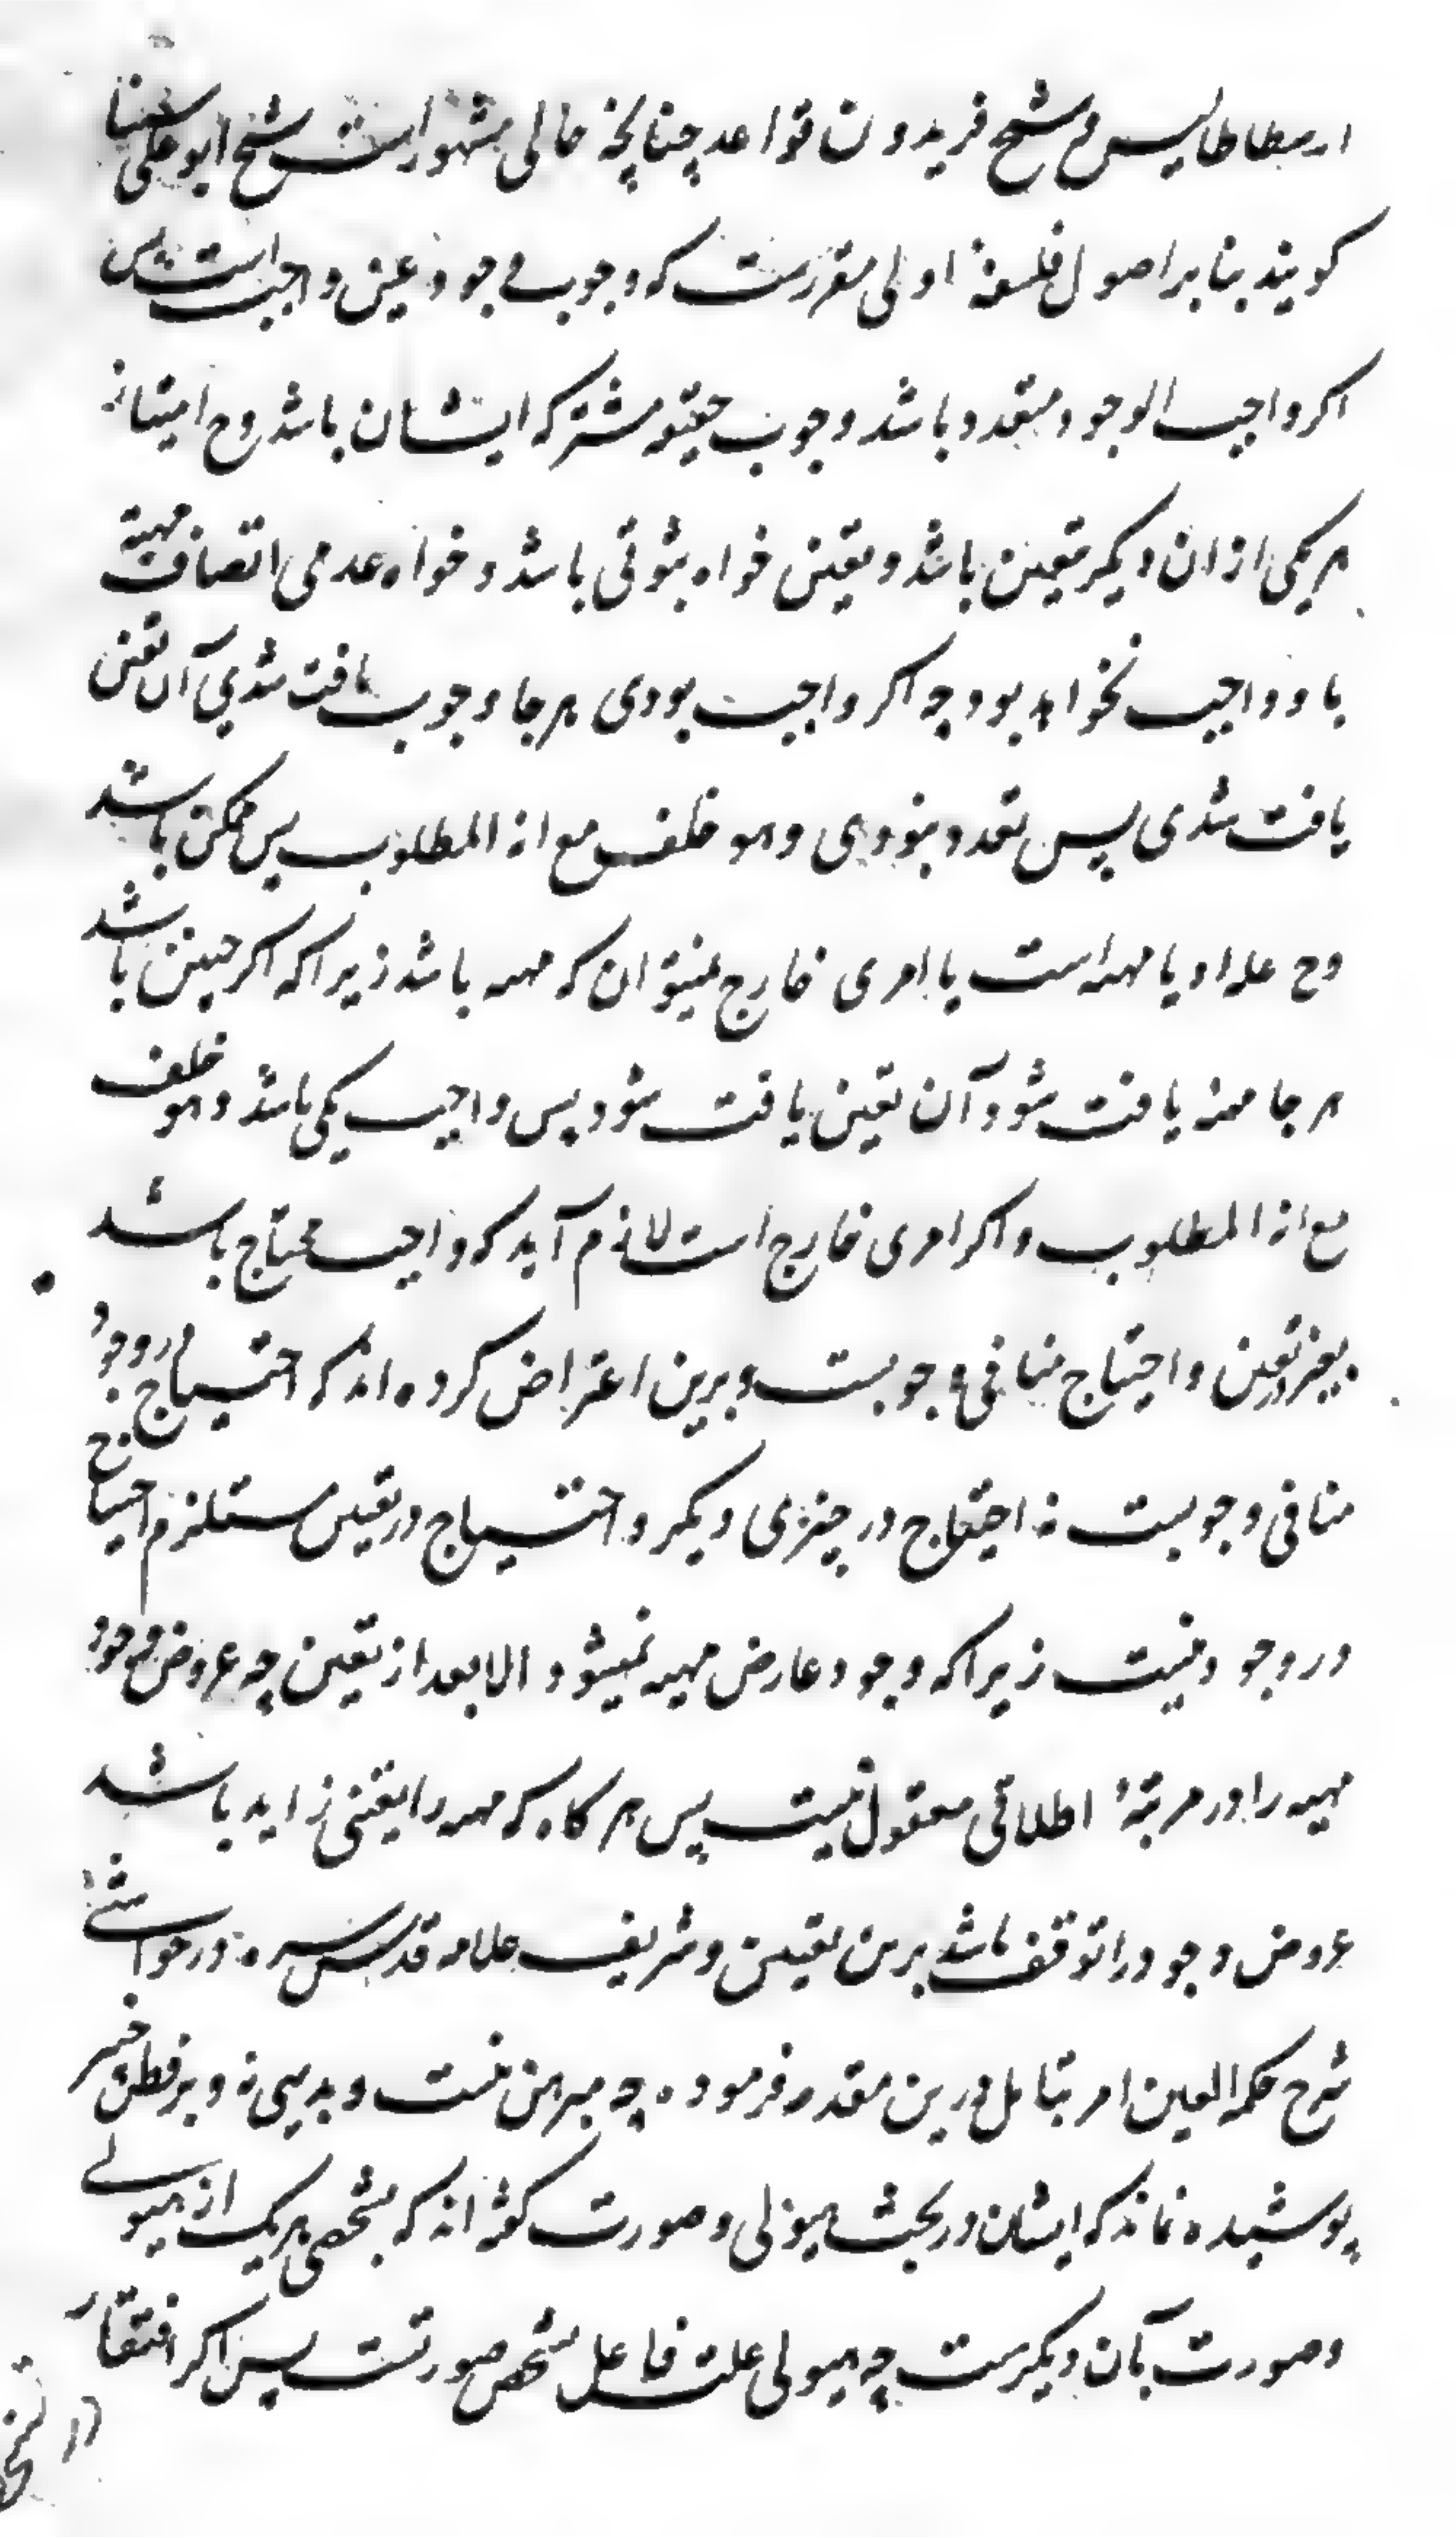 ارسطاطالیس و شیخ فریدون قواعد چنانچه خالی مشهور است شیخ ابو علی سینا
کویند بنا بر اصول فلسفهٔ اولی مقررست که وجوب وجود عین واجب است پس
اکر واجب الوجود متعدد باشد وجوب حقیقه مشترکه ایشان باشد وح امتیاز
هر یکی از ان دیکر بتعین باشد و تعین خواه ثبوتی باشد و خواه عدمی اتصاف مهیة
باو واجب نخواهد بود چه اکر واجب بودی هر جا وجوب یافت شدی آن تعین
یافت شدی پس تعدد نبودی وهو خلف مع انه المطلوب پس ممکن باشد
وح علة او یا مهیه است یا امری خارج نمیتوان که مهیه باشد زیرا که اکر چنین باشد
هر جا مهیه یافت شود آن تعین یافت شود پس واجب یکی باشد وهو خلف
مع انه المطلوب و اکر امری خارج است لازم آید که واجب محتاج باشد
بغیر در تعین و احتیاج منافی وجوبست و برین اعتراض کرده اند که احتیاج در وجود
منافی وجوبست نه احتیاج در چیزی دیکر و احتیاج در تعین مستلزم احتیاج
در وجود نیست زیرا که وجود عارض مهیه نمیشود الا بعد از تعین چه عروض وجود
مهیه را در مرتبهٔ اطلاقی معقول نیست پس هر کاه که مهیه را تعینی زاید باشد
عروض وجود را توقف باشد برین تعین و شریف علامه قدس سره در حواشی
شرح حکمة العین امر بتامل درین مقدمه فرموده چه مبرهن نیست و بدیهی نه و بر فطن خبیر
پوشیده نماند که ایشان در بحث هیولی و صورت کفته اند که تشخص هر یک از هیولی
و صورت بآن دیکرست چه هیولی علت قابل تشخص صورتست پس اکر افتقار
در تشخص